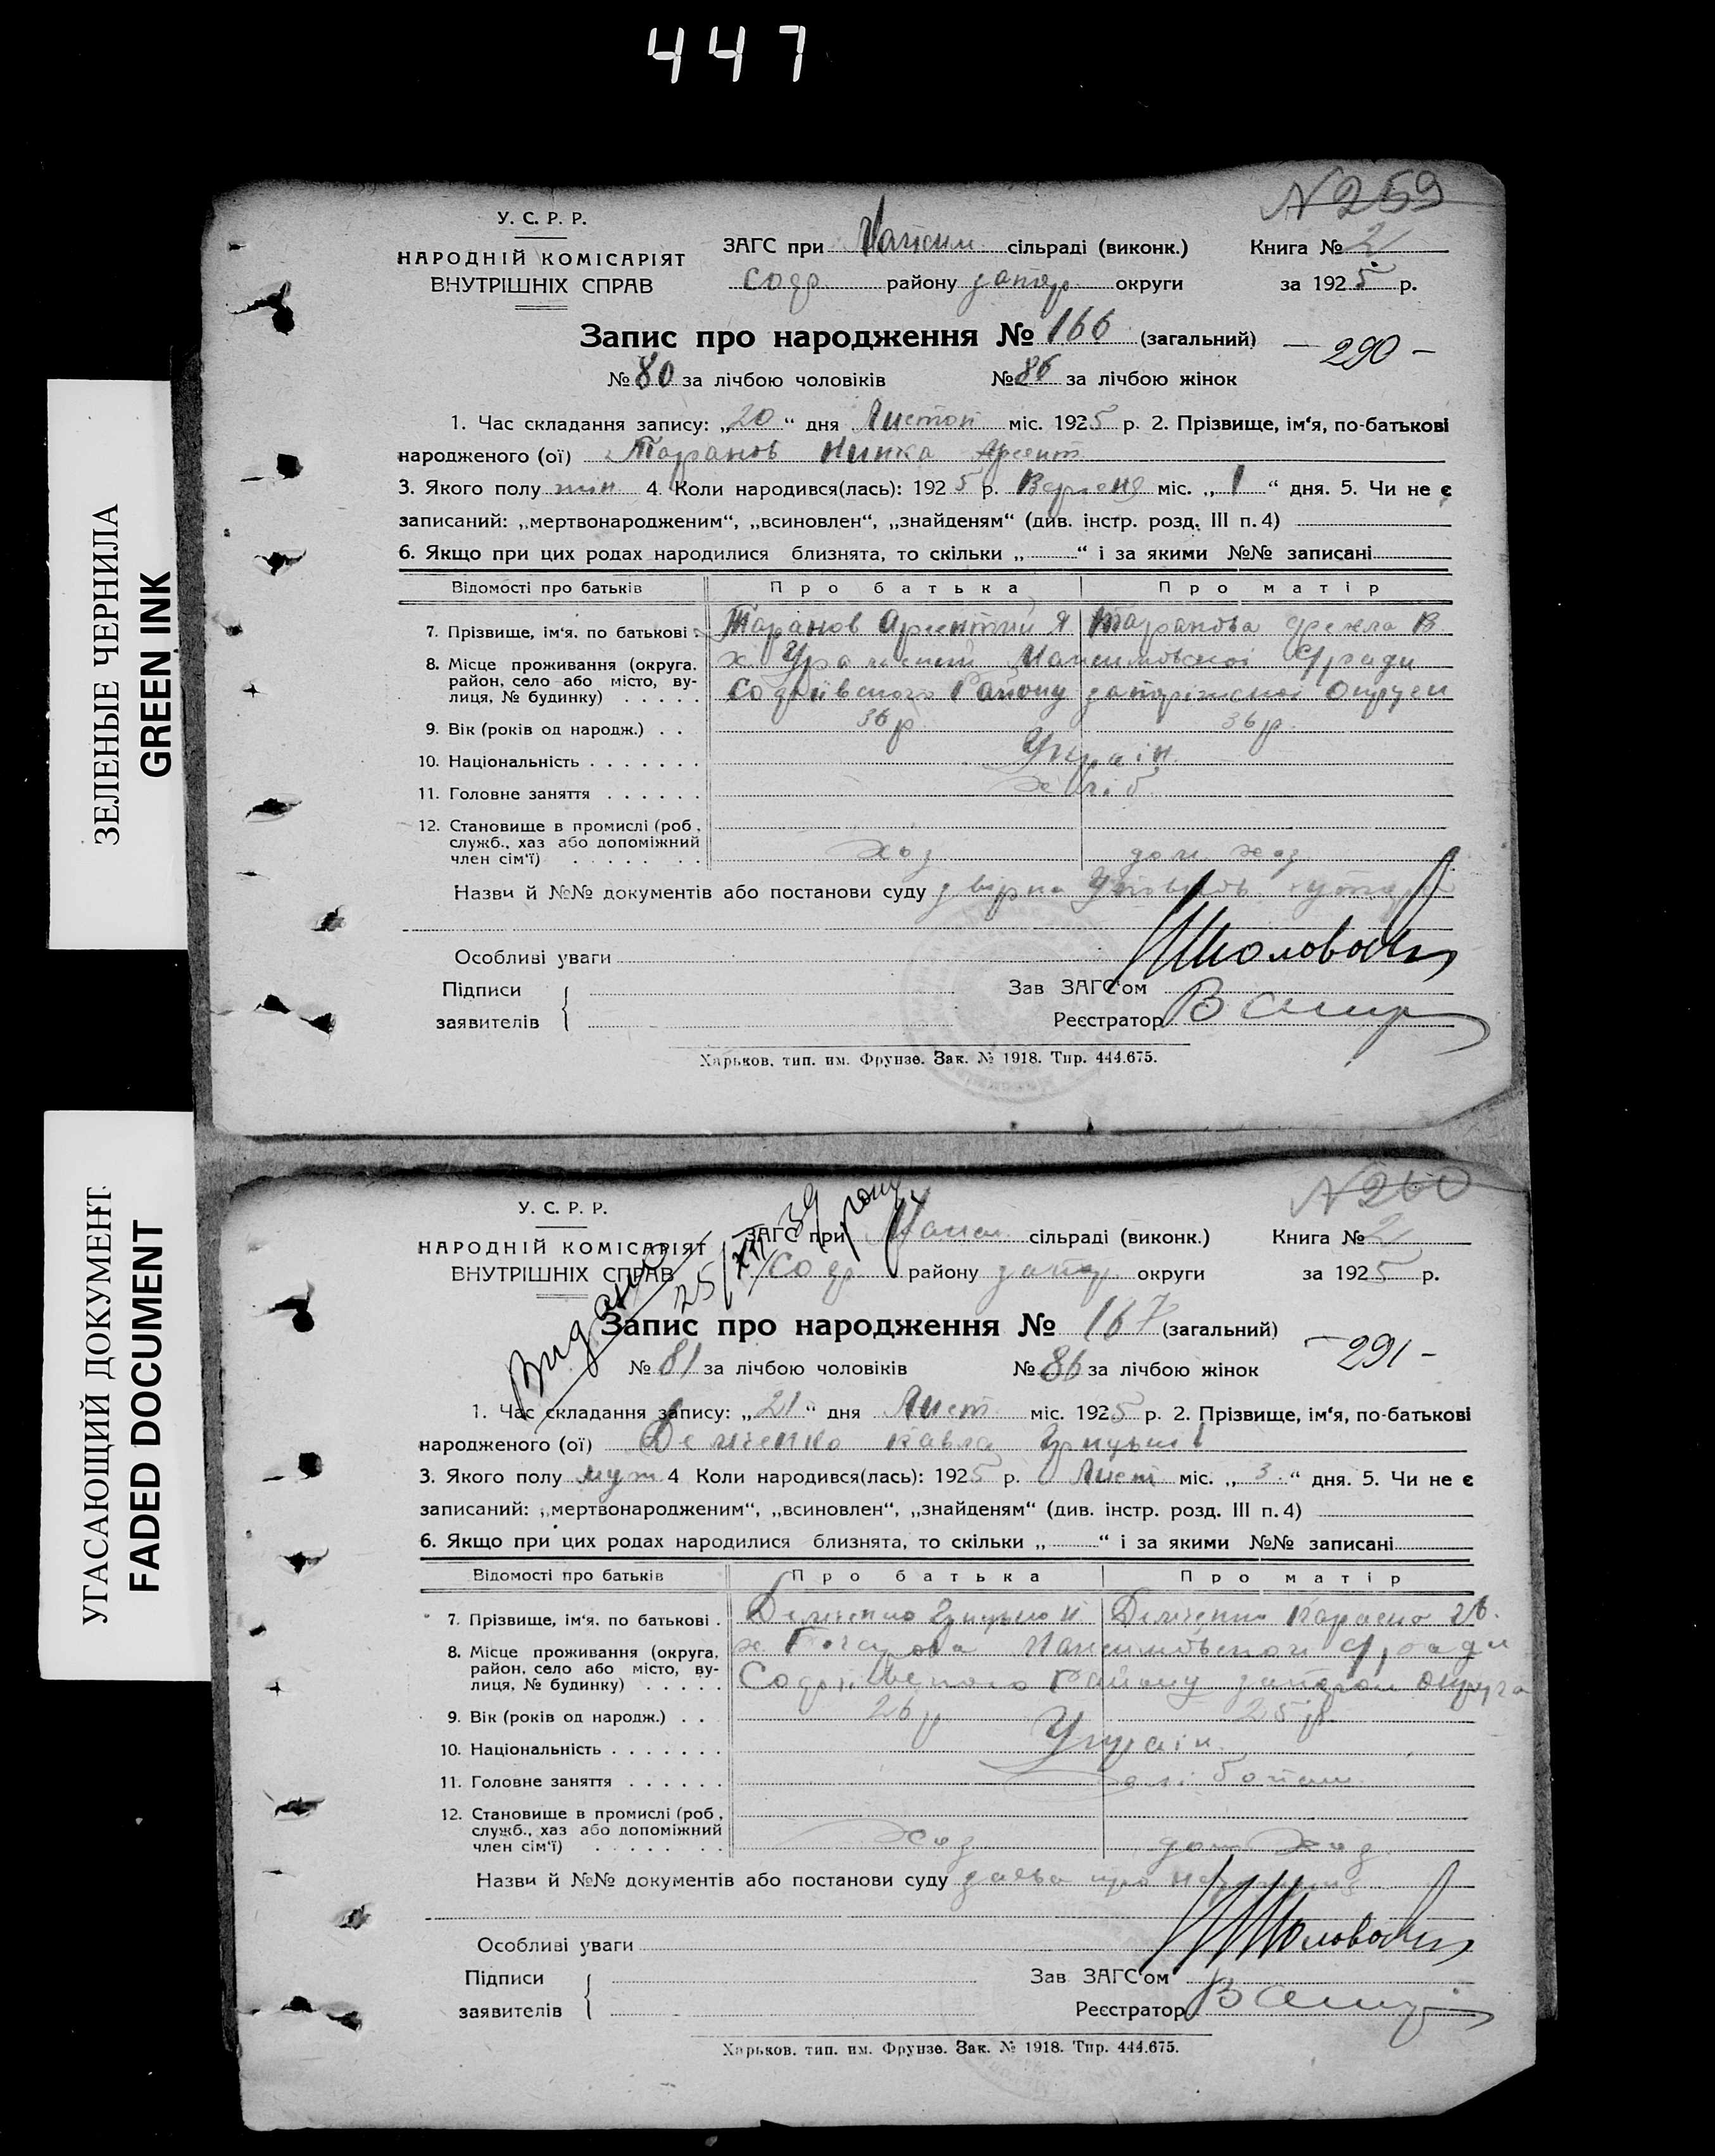 447
ЗЕЛЕНЫЕ ЧЕРНИЛА
GREEN INK
УГАСАЮЩИЙ ДОКУМЕНТ
FADED DOCUMENT
N 259
У. С. Р. Р.
НАРОДНІЙ КОМІСАРІЯТ
ВНУТРІШНІХ СПРАВ
ЗАГС при Максим сільраді (виконк.) Книга № 2
Софр району запор округи за 1925 р.
Запис про народження № 166 (загальний)
— 290 —
№ 80 за лічбою чоловіків № 86 за лічбою жінок
1. Час складання запису: „20“ дня Листоп міс. 1925 р. 2. Прізвище, ім‘я, по-батькові
народженого (ої) Таранов Нинка Арсент
3. Якого полу жін 4. Коли народився(лась): 1925 р. Вересня міс. „1“ дня. 5. Чи не є
записаний: „мертвонародженим“, „всиновлен“, „знайденям“ (див. інстр. розд. III п. 4)
6. Якщо при цих родах народилися близнята, то скільки „ “ і за якими №№ записані
Відомості про батьків Про батька Про матір
7. Прізвище, ім‘я. по батькові Таранов Арсентий Я Таранова В
8. Місце проживання (округа, х. Максимовскоі С/ради
район, село або місто, ву- Софіівского Району запоріжскоі округи
лиця, № будинку)
9. Вік (років од народж.) 36 р. 36 р.
10. Національність Украін.
11. Головне заняття хліб
12. Становище в промислі (роб.,
служб., хаз або допоміжний хоз дом. хоз
член сім‘ї)
Назви й №№ документів або постанови суду
Особливі уваги
Підписи Зав ЗАГС‘ом
заявителів Реєстратор
Харьков, тип. им. Фрунзе. Зак. № 1918. Тир. 444.675.
N 260
Видано
25/XII 39 року
У. С. Р. Р.
НАРОДНІЙ КОМІСАРІЯТ
ВНУТРІШНІХ СПРАВ
ЗАГС при Максим сільраді (виконк.) Книга № 2
Софр району запор округи за 1925 р.
Запис про народження № 167 (загальний)
— 291 —
№ 81 за лічбою чоловіків № 86 за лічбою жінок
1. Час складання запису: „21“ дня Лист міс. 1925 р. 2. Прізвище, ім‘я, по-батькові
народженого (ої) Демченко Павло Грицьків
3. Якого полу муж 4 Коли народився(лась): 1925 р. Лист міс. „3“ дня. 5. Чи не є
записаний: „мертвонародженим“, „всиновлен“, „знайденям“ (див. інстр. розд. III п. 4)
6. Якщо при цих родах народилися близнята, то скільки „ “ і за якими №№ записані
Відомості про батьків Про батька Про матір
7. Прізвище, ім‘я. по батькові Демченко Грицько Демченко
8. Місце проживання (округа, х. Максимовскои С/ради
район, село або місто, ву- Софиівского Району запорож округа
лиця, № будинку)
9. Вік (років од народж.) 26 р 25 р.
10. Національність Украін.
11. Головне заняття
12. Становище в промислі (роб.,
служб., хаз або допоміжний Хоз дом Хоз
член сім‘ї)
Назви й №№ документів або постанови суду заява про
Особливі уваги
Підписи Зав ЗАГС‘ом
заявителів Реєстратор
Харьков, тип. им. Фрунзе. Зак. № 1918. Тир. 444.675.